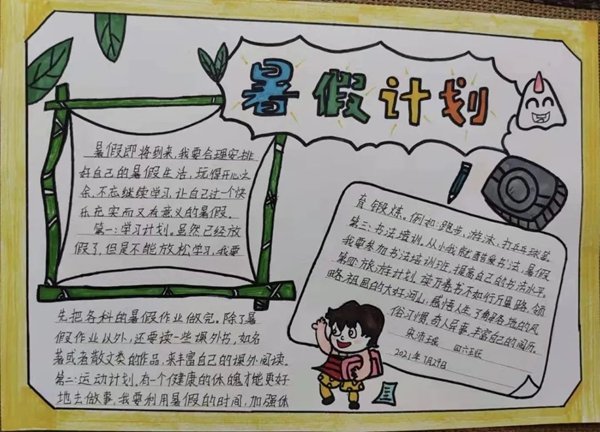 暑假计划
暑假即将到来,我要合理安排
好自己的暑假生活,玩得开心之
余,不忘继续学习,让自己过个快
乐充实而又有意义的暑假。
第一:学习计划,虽然已经放
假了,但是不能放松学习,我要
先把各科的暑假作业做完。除了暑
假作业以外,还要读一些课外书,如名
著或者散文类的作品,来丰富自己的课外阅读。
第二:运动计划。有一个健康的体魄才能更好
地去做事,我要利用暑假的时间,加强体
育锻炼。例如:跑步,游泳,打乒乓球等
第三:书法培训,从小我就酷爱书法,暑假
我要参加书法培训班,提高自己的书法水平。
第四:旅游计划,读万卷书不如行万里路,领
略祖国的大好河山,感悟人生,了解各地的风
俗习惯,奇人异事,丰富自己的阅历。
四六班
2021年7月29日